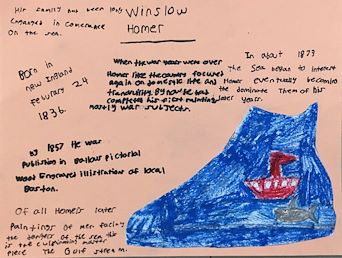 His family has been long
engaged in comerance
on the sea.
Winslow
Homer
Born in
new England
Feburary 24
1836.
When the war years were over
Homer like the country focused
again on domestic life and
tranquility. By now he had
completed his first painting
mostly war subjects.
In about 1873
The Sea began to interest
Homer eventually becoming
the dominate Them of his
later years.
by 1857 He was
Publishing in Ballou Pictorial
Wood Engraved illustration of local
Boston.
Of all Homers later
Paintings of men facing
the dangers of the sea this
is the culiminating master
piece The Gulf stream.